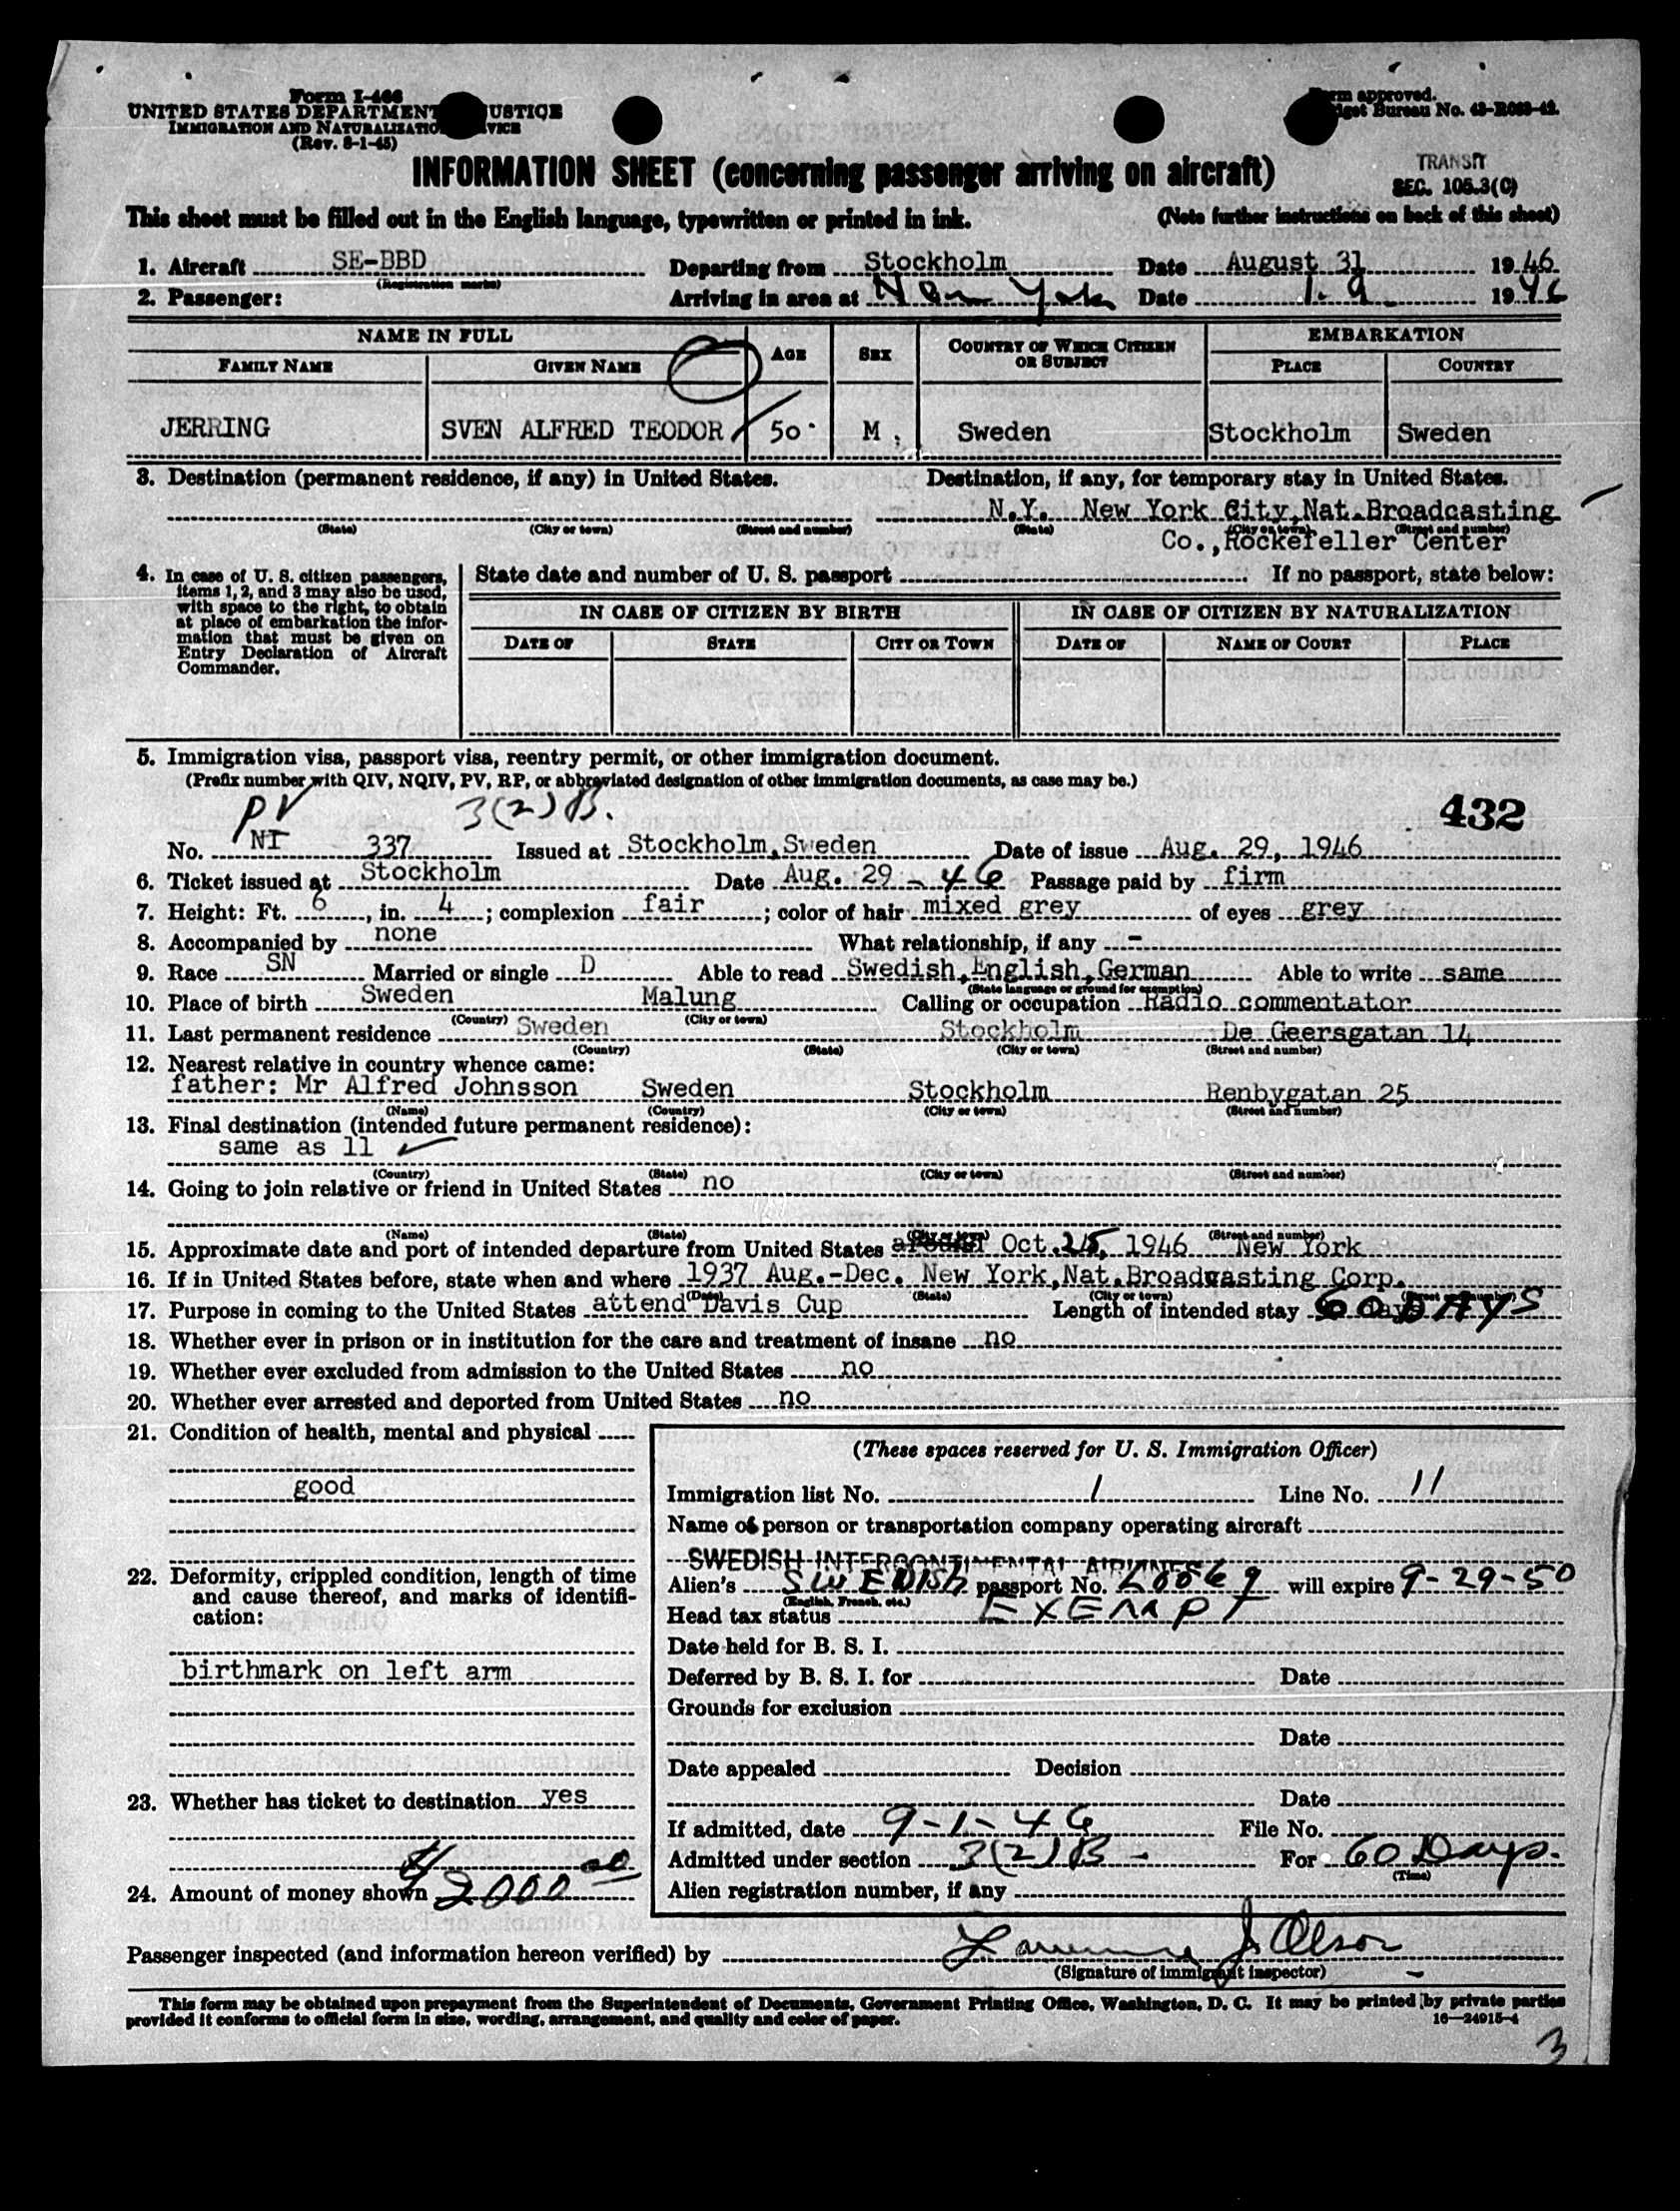 Form I-466
UNITED STATES DEPARTMENT USTICE
IMMIGRATION AND NATURALIZATIO VICE
(Rev. 8-1-45)
rm approved.
get Bureau No. 43-R083-42.
INFORMATION SHEET (concerning passenger arriving on aircraft)
TRANSIT
SEC. 105.3(C)
This sheet must be filled out in the English language, typewritten or printed in ink. (Note further instructions on back of this sheet)
1. Aircraft SE-BBD Departing from Stockholm Date August 31 1946
(Registration marks)
2. Passenger: Arriving in area at New York Date 1.9 1946
NAME IN FULL AGE SEX COUNTRY OF WHICH CITIZEN OR SUBJECT EMBARKATION
FAMILY NAME GIVEN NAME PLACE COUNTRY
JERRING SVEN ALFRED TEODOR 50 M, Sweden Stockholm Sweden
3. Destination (permanent residence, if any) in United States. Destination, if any, for temporary stay in United States.
N.Y. New York City, Nat.Broadcasting
(State) (City or town) (Street and number) (State) (City or town) (Street and number)
Co.,Rockefeller Center
4. In case of U. S. citizen passengers, items 1, 2, and 3 may also be used, with space to the right, to obtain at place of embarkation the information that must be given on Entry Declaration of Aircraft Commander.
State date and number of U. S. passport If no passport, state below:
IN CASE OF CITIZEN BY BIRTH IN CASE OF CITIZEN BY NATURALIZATION
DATE OF STATE CITY OR TOWN DATE OF NAME OF COURT PLACE
5. Immigration visa, passport visa, reentry permit, or other immigration document.
(Prefix number with QIV, NQIV, PV, RP, or abbreviated designation of other immigration documents, as case may be.)
PV 3(2)B. 432
No. NI 337 Issued at Stockholm,Sweden Date of issue Aug. 29, 1946
6. Ticket issued at Stockholm Date Aug. 29 - 46 Passage paid by firm
7. Height: Ft. 6, in. 4; complexion fair; color of hair mixed grey of eyes grey
8. Accompanied by none What relationship, if any -
9. Race SN Married or single D Able to read Swedish,English,German Able to write same
(State language or ground for exemption)
10. Place of birth Sweden Malung Calling or occupation Radio commentator
(Country) (City or town)
11. Last permanent residence Sweden Stockholm De Geersgatan 14
(Country) (State) (City or town) (Street and number)
12. Nearest relative in country whence came:
father: Mr Alfred Johnsson Sweden Stockholm Renbygatan 25
(Name) (Country) (City or town) (Street and number)
13. Final destination (intended future permanent residence):
same as 11
(Country) (State) (City or town) (Street and number)
14. Going to join relative or friend in United States no
(Name) (State) (City or town) (Street and number)
15. Approximate date and port of intended departure from United States Oct. 25, 1946 New York
16. If in United States before, state when and where 1937 Aug.-Dec. New York,Nat.Broadcasting Corp.
(Date) (State) (City or town) (Street and number)
17. Purpose in coming to the United States attend Davis Cup Length of intended stay 60 DAYS
18. Whether ever in prison or in institution for the care and treatment of insane no
19. Whether ever excluded from admission to the United States no
20. Whether ever arrested and deported from United States no
21. Condition of health, mental and physical
good
22. Deformity, crippled condition, length of time
and cause thereof, and marks of identifi-
cation:
birthmark on left arm
23. Whether has ticket to destination yes
24. Amount of money shown $2000.00
(These spaces reserved for U. S. Immigration Officer)
Immigration list No. 1 Line No. 11
Name of person or transportation company operating aircraft
SWEDISH INTERCONTINENTAL AIRLINES
Alien's SWEDISH passport No. will expire 9-29-50
(English, French, etc.)
Head tax status EXEMPT
Date held for B. S. I.
Deferred by B. S. I. for Date
Grounds for exclusion
Date
Date appealed Decision
Date
If admitted, date 9-1-46 File No.
Admitted under section 3(2)B - For 60 Days.
(Time)
Alien registration number, if any
Passenger inspected (and information hereon verified) by Lawrence J. Olson
(Signature of immigrant inspector)
This form may be obtained upon prepayment from the Superintendent of Documents, Government Printing Office, Washington, D. C. It may be printed by private parties
provided it conforms to official form in size, wording, arrangement, and quality and color of paper.
16—24915-4
3